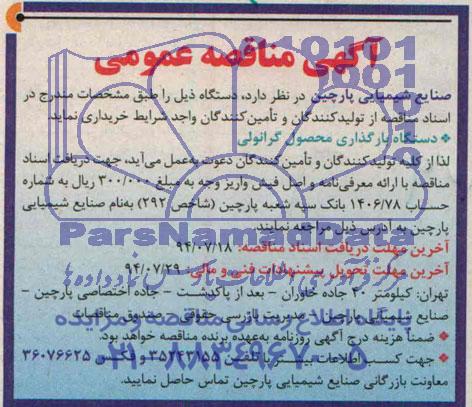 آگهی مناقصه عمومی
صنایع شیمیایی پارچین در نظر دارد، دستگاه ذیل را طبق مشخصات مندرج در
اسناد مناقصه از تولیدکنندگان و تأمین‌کنندگان واجد شرایط خریداری نماید.
دستگاه بارگذاری محصول گرانولی
لذا از کلیه تولیدکنندگان و تأمین‌کنندگان دعوت به‌عمل می‌آید، جهت دریافت اسناد
مناقصه با ارائه معرفی‌نامه و اصل فیش واریز وجه به مبلغ ۳۰۰/۰۰۰ ریال به شماره
حساب ۱۴۰۶/۷۸ بانک سپه شعبه پارچین (شاخص ۲۹۲) به‌نام صنایع شیمیایی
پارچین به آدرس ذیل مراجعه نمایند.
ParsNamadData
آخرین مهلت دریافت اسناد مناقصه: ۹۴/۰۷/۱۸
آخرین مهلت تحویل پیشنهادات فنی و مالی: ۹۴/۰۷/۲۹
تهران: کیلومتر ۴۰ جاده خاوران - بعد از پاکدشت - جاده اختصاصی پارچین -
صنایع شیمیایی پارچین - مدیریت بازرسی حقوقی - صندوق مناقصات
پایگاه اطلاع رسانی مناقصه و مزایده
ضمناً هزینه درج آگهی روزنامه به‌عهده برنده مناقصه خواهد بود.
جهت کسب اطلاعات بیشتر با تلفن ۳۵۲۴۳۱۵۵ و فکس ۳۶۰۷۶۶۲۵
۰۲۱-۸۸۳۴۹۶۷۰-۵
معاونت بازرگانی صنایع شیمیایی پارچین تماس حاصل نمایید.